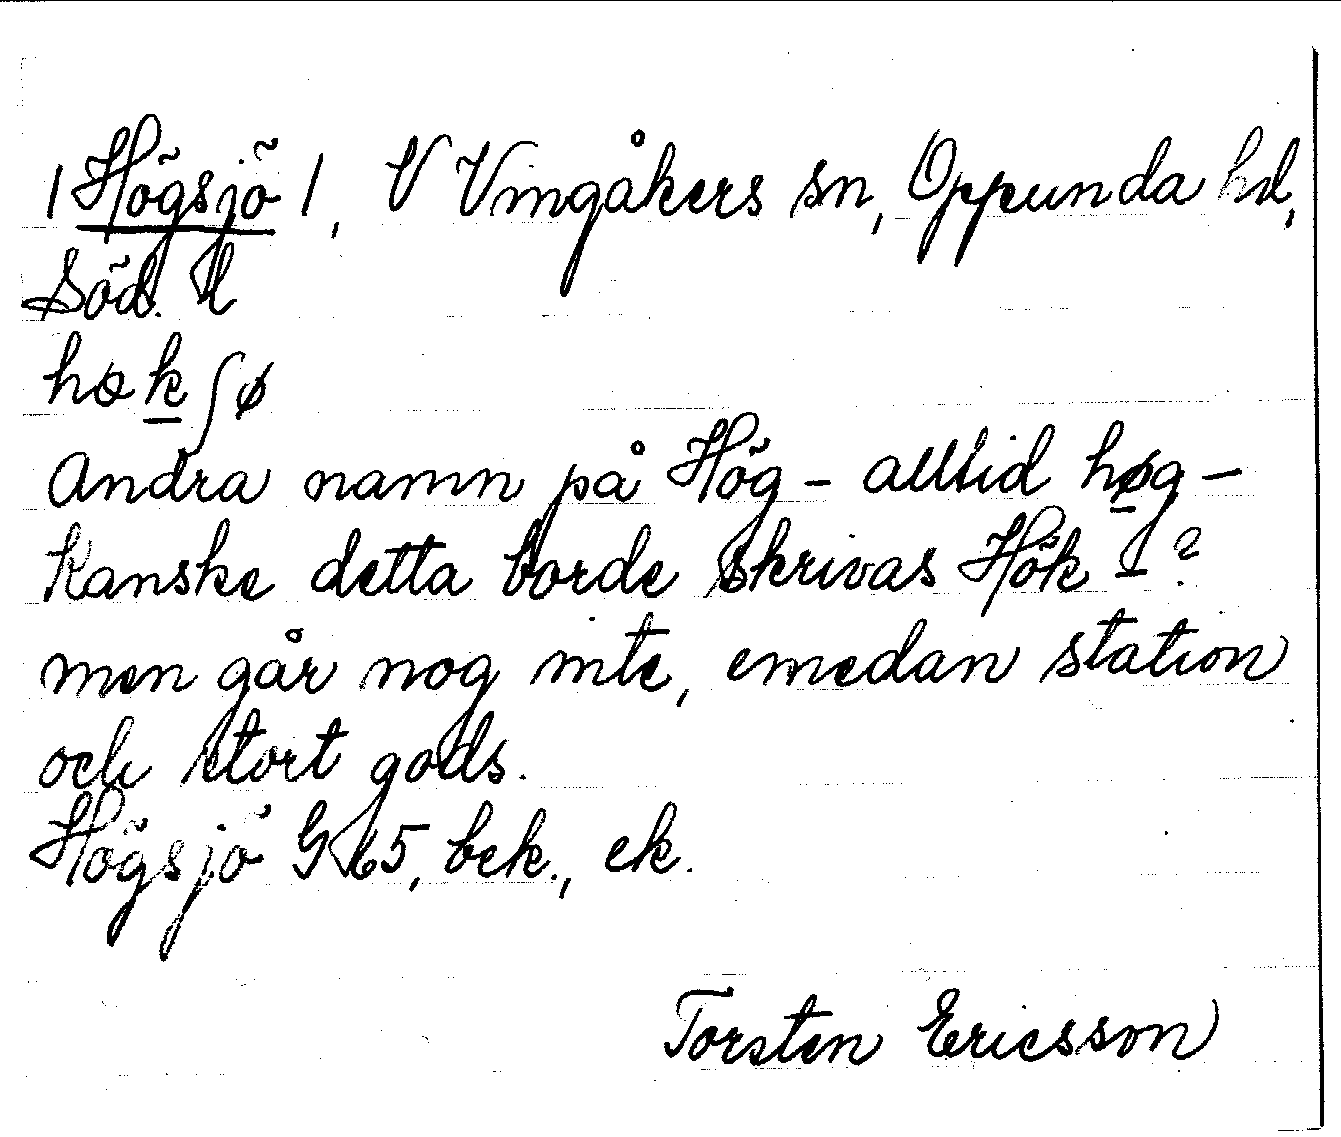 /Högsjö/, V Vingåkers sn, Oppunda hd,
Söd. l
høkʃø
Andra namn på Hög - alltid høg -
Kanske detta borde skrivas Hök - ?
men går nog inte, emedan station
och stort gods.
Högsjö G 65, bek., ek.
Torsten Ericsson